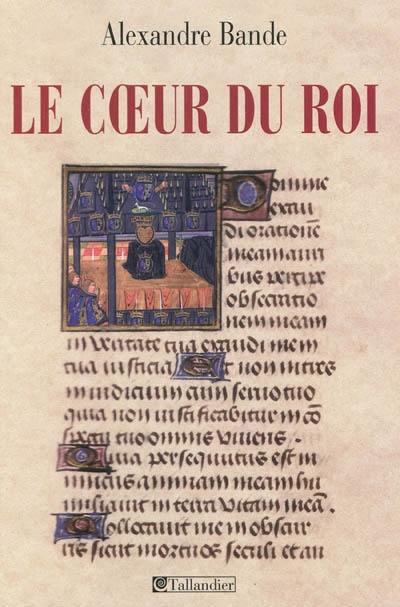 Alexandre Bande
LE CŒUR DU ROI
Domine
exaudi
di orationē
meam auri
bus percipe
obsecratio
nem meam
in veritate tua exaudi me in
tua iusticia Et non intres
in iudicium cum servo tuo
quia non iustificabitur in cō
spectu tuo omnis vivens.
Quia persequutus est in
imicus animam meam hu
miliavit in terra vitam meā.
Collocavit me in obscu
ris sicut mortuos seculi et an
Tallandier